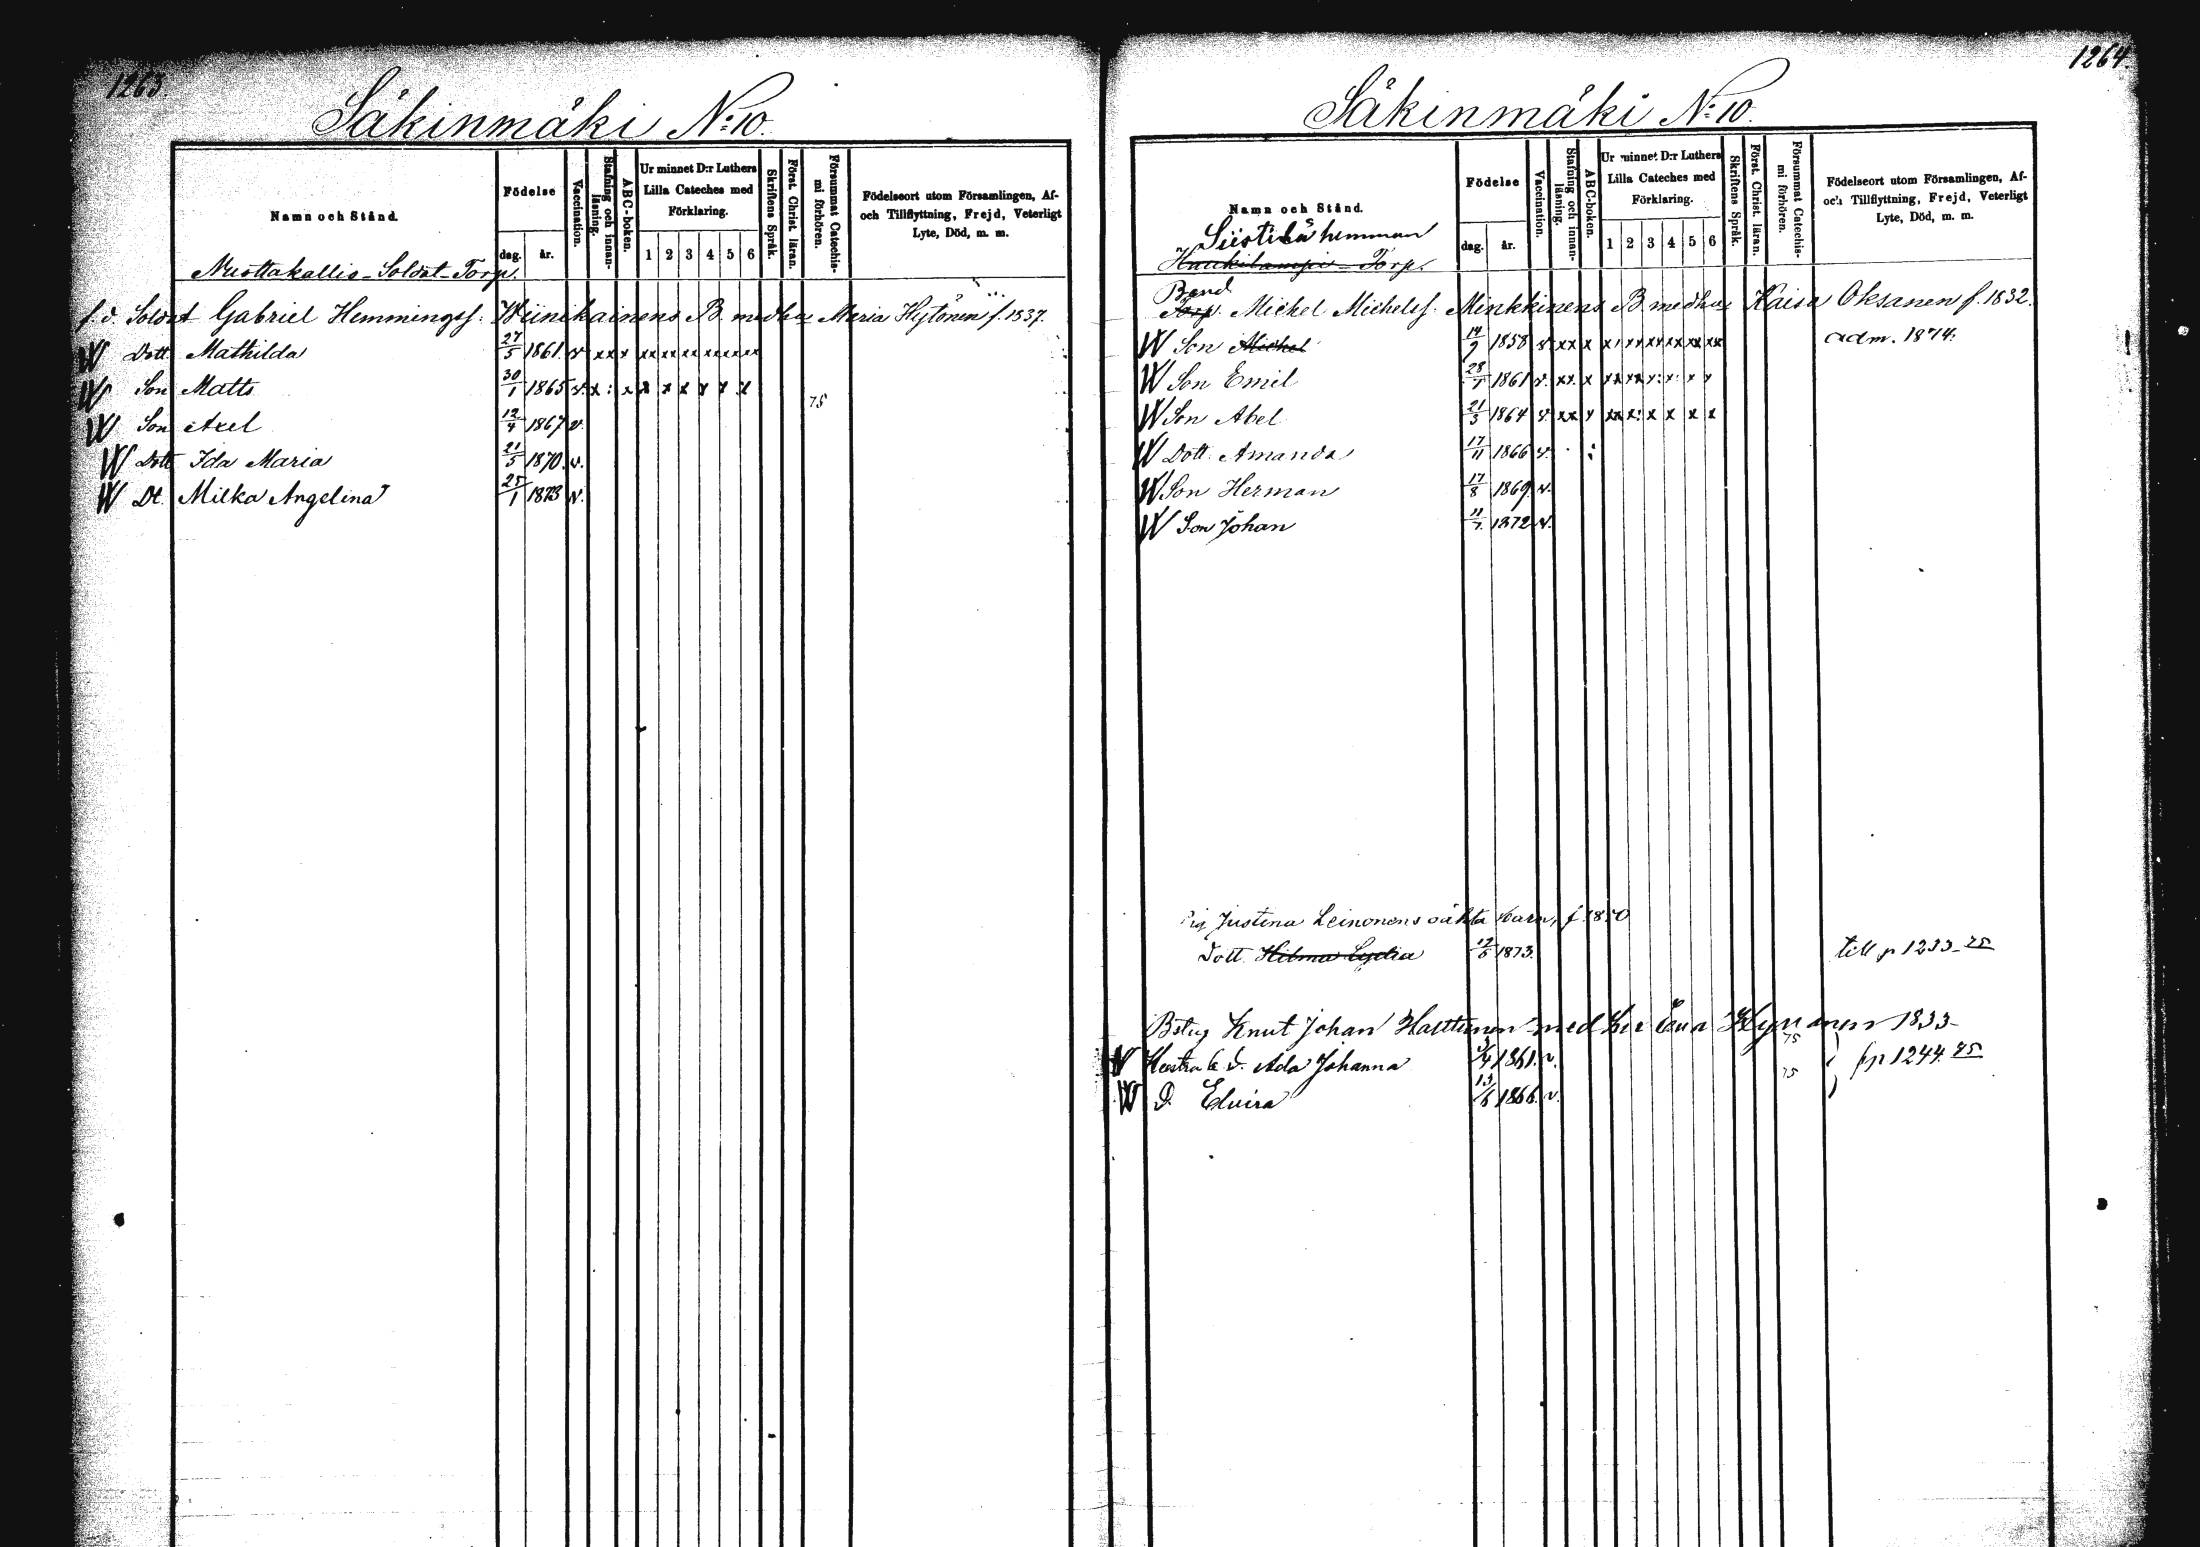 1263.
Säkinmäki No: 10.
Namn och Stånd.
Födelse
dag. år.
Vaccination.
Stafning och innan-läsning.
ABC-boken.
Ur minnet D:r Luthers Lilla Cateches med Förklaring.
1 2 3 4 5 6
Skriftens Språk.
Först. Christ. läran.
Försummat Catechis-mi förhören.
Födelseort utom Församlingen, Af- och Tillflyttning, Frejd, Veterligt Lyte, Död, m. m.
Mustakallio Soldat Torp.
f. d. Soldat Gabriel Hemmingss. Wiinikainens B. med hu Maria Hytönen f. 1837.
W Dott. Mathilda 27/5 1861. v. xx x xx xx xx xx xx xx
W Son Matts 30/1 1865 v. x : x x x x x x x 75
W Son Axel 12/4 1867 v.
W Dott Ida Maria 21/5 1870. v.
W Dt. Milka Angelina 25/1 1873 v.
1264.
Säkinmäki No: 10.
Namn och Stånd.
Födelse
dag. år.
Vaccination.
Stafning och innan-läsning.
ABC-boken.
Ur minnet D:r Luthers Lilla Cateches med Förklaring.
1 2 3 4 5 6
Skriftens Språk.
Först. Christ. läran.
Försummat Catechis-mi förhören.
Födelseort utom Församlingen, Af- och Tillflyttning, Frejd, Veterligt Lyte, Död, m. m.
Siistilä hemman
Haukilampi Torp.
Bond
Torp. Michel Michelss. Minkkinens B. med hu Kaisa Oksanen f. 1832.
W Son Michel 1858 v. xx x adm. 1874.
W Son Emil 1861 v. xx x
W Son Abel 21/3 1864 v. xx x
W Dott. Amanda 17/11 1866 v.
W Son Herman 17/8 1869. v.
W Son Johan 11/7 1872 v.
Pig Justina Leinonens oäkta barn, f. 1850
Dott. Hilma Lydia 12/5 1873. till p 1233 75
Bstug Knut Johan Halttunen med hu Eva 1833
W Hustru D. Ada Johanna 1861. v. 75 fp 1244. 75
W D. Elvira 13/6 1866. v. 75